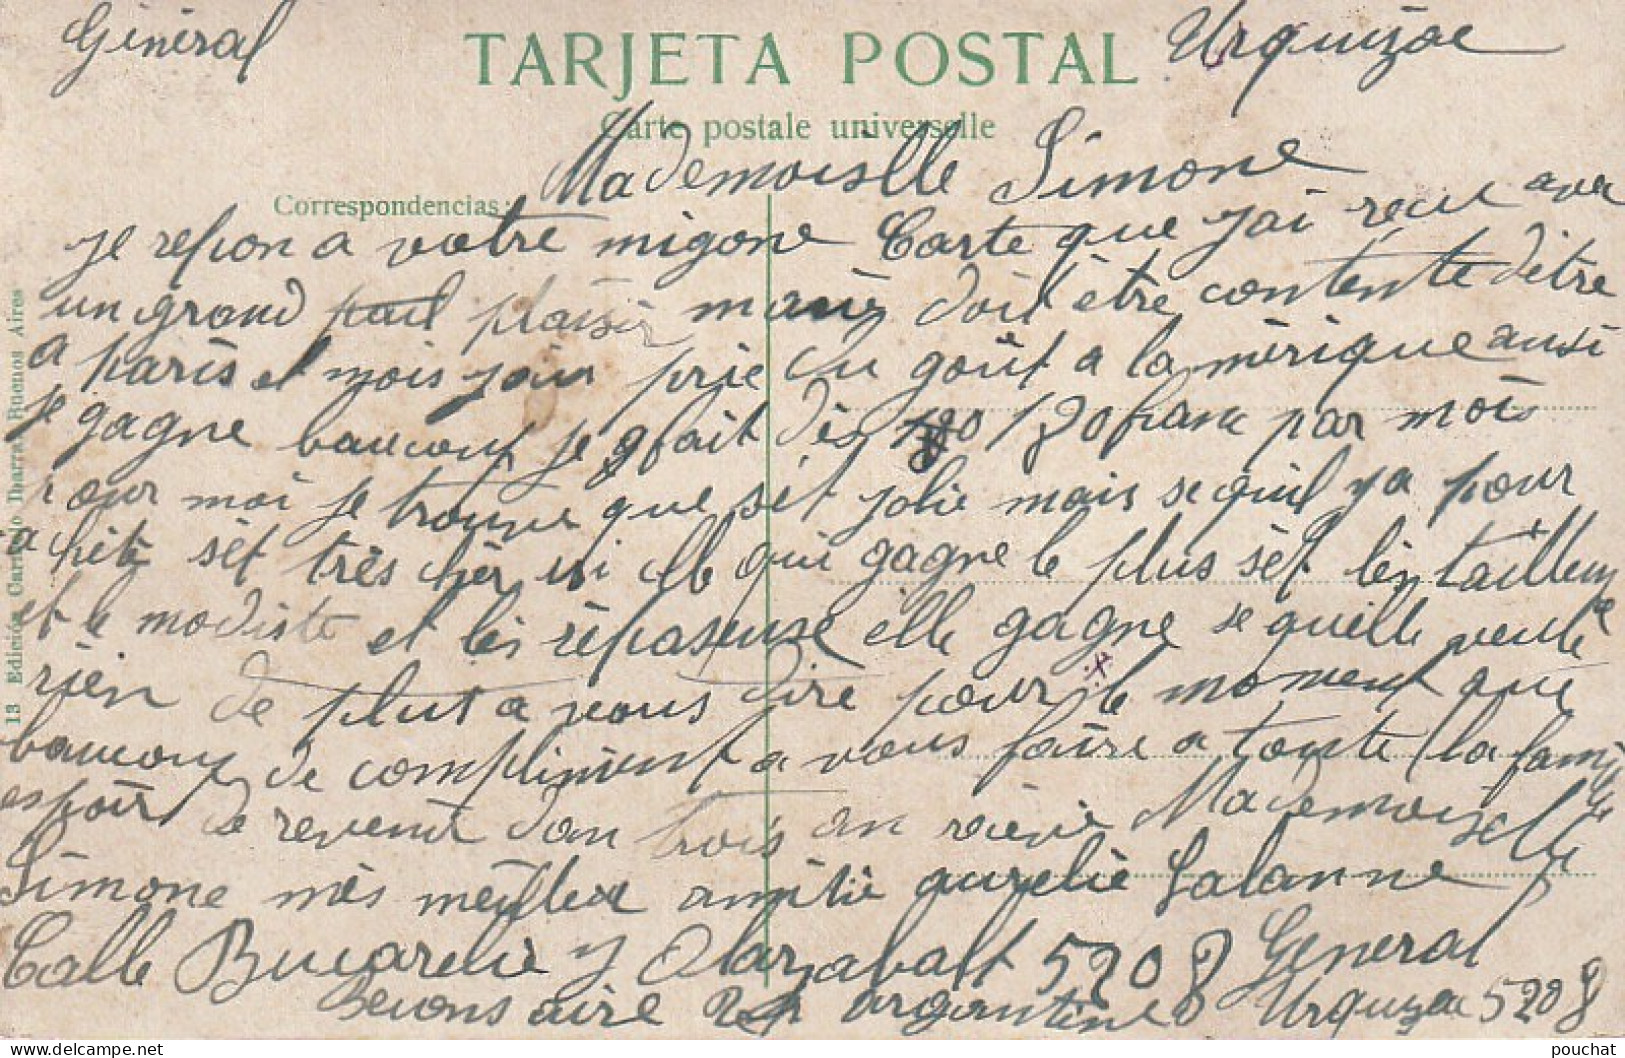 Général Urquizae
TARJETA POSTAL
Carte postale universelle
Mademoiselle Simone
Correspondencias:
je repon a votre migone Carte que j'ai recu avec
un grand plaisir mais doit être contente d'être
a paris et mois j'ai prie du goût a la mérique ausi
je gagne baucoup je fait dès 180 franc par mois
pour moi je trouve que sèt jolie mais se quil ya pour
a chètè sèt très chèr elle qui gagne le plus sèt lès tailleur
et le modiste et lès rèpaseuse elle gagne se quelle veule
rien de plus a vous dire pour le moment que
baucoup de compliment a vous faire a toute la famille
espoir de revenir dan trois an Mademoiselle
Simone mès meilleur amitiè aurelie Lalanne
Calle Bucarelie y Olarzabalt 5208 General
Beuons aire Rep argentine Urquizae 5208
13 Edición Garibaldo Ibarra, Buenos Aires
pouchat